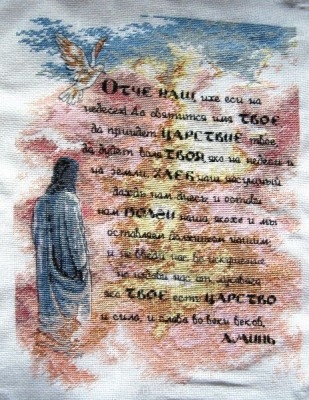 Отче наш иже еси на
небесех! Да святится имя Твое
да приидет Царствие твое
да будет воля Твоя яко на небеси и
на земли. Хлеб наш насущный
даждь нам днесь и остави
нам долги наша якоже и мы
оставляем должником нашим,
и не введи нас во искушение
но избави нас от лукаваго
яко Твое есть Царство
и сила, и слава во веки веков.
Аминь